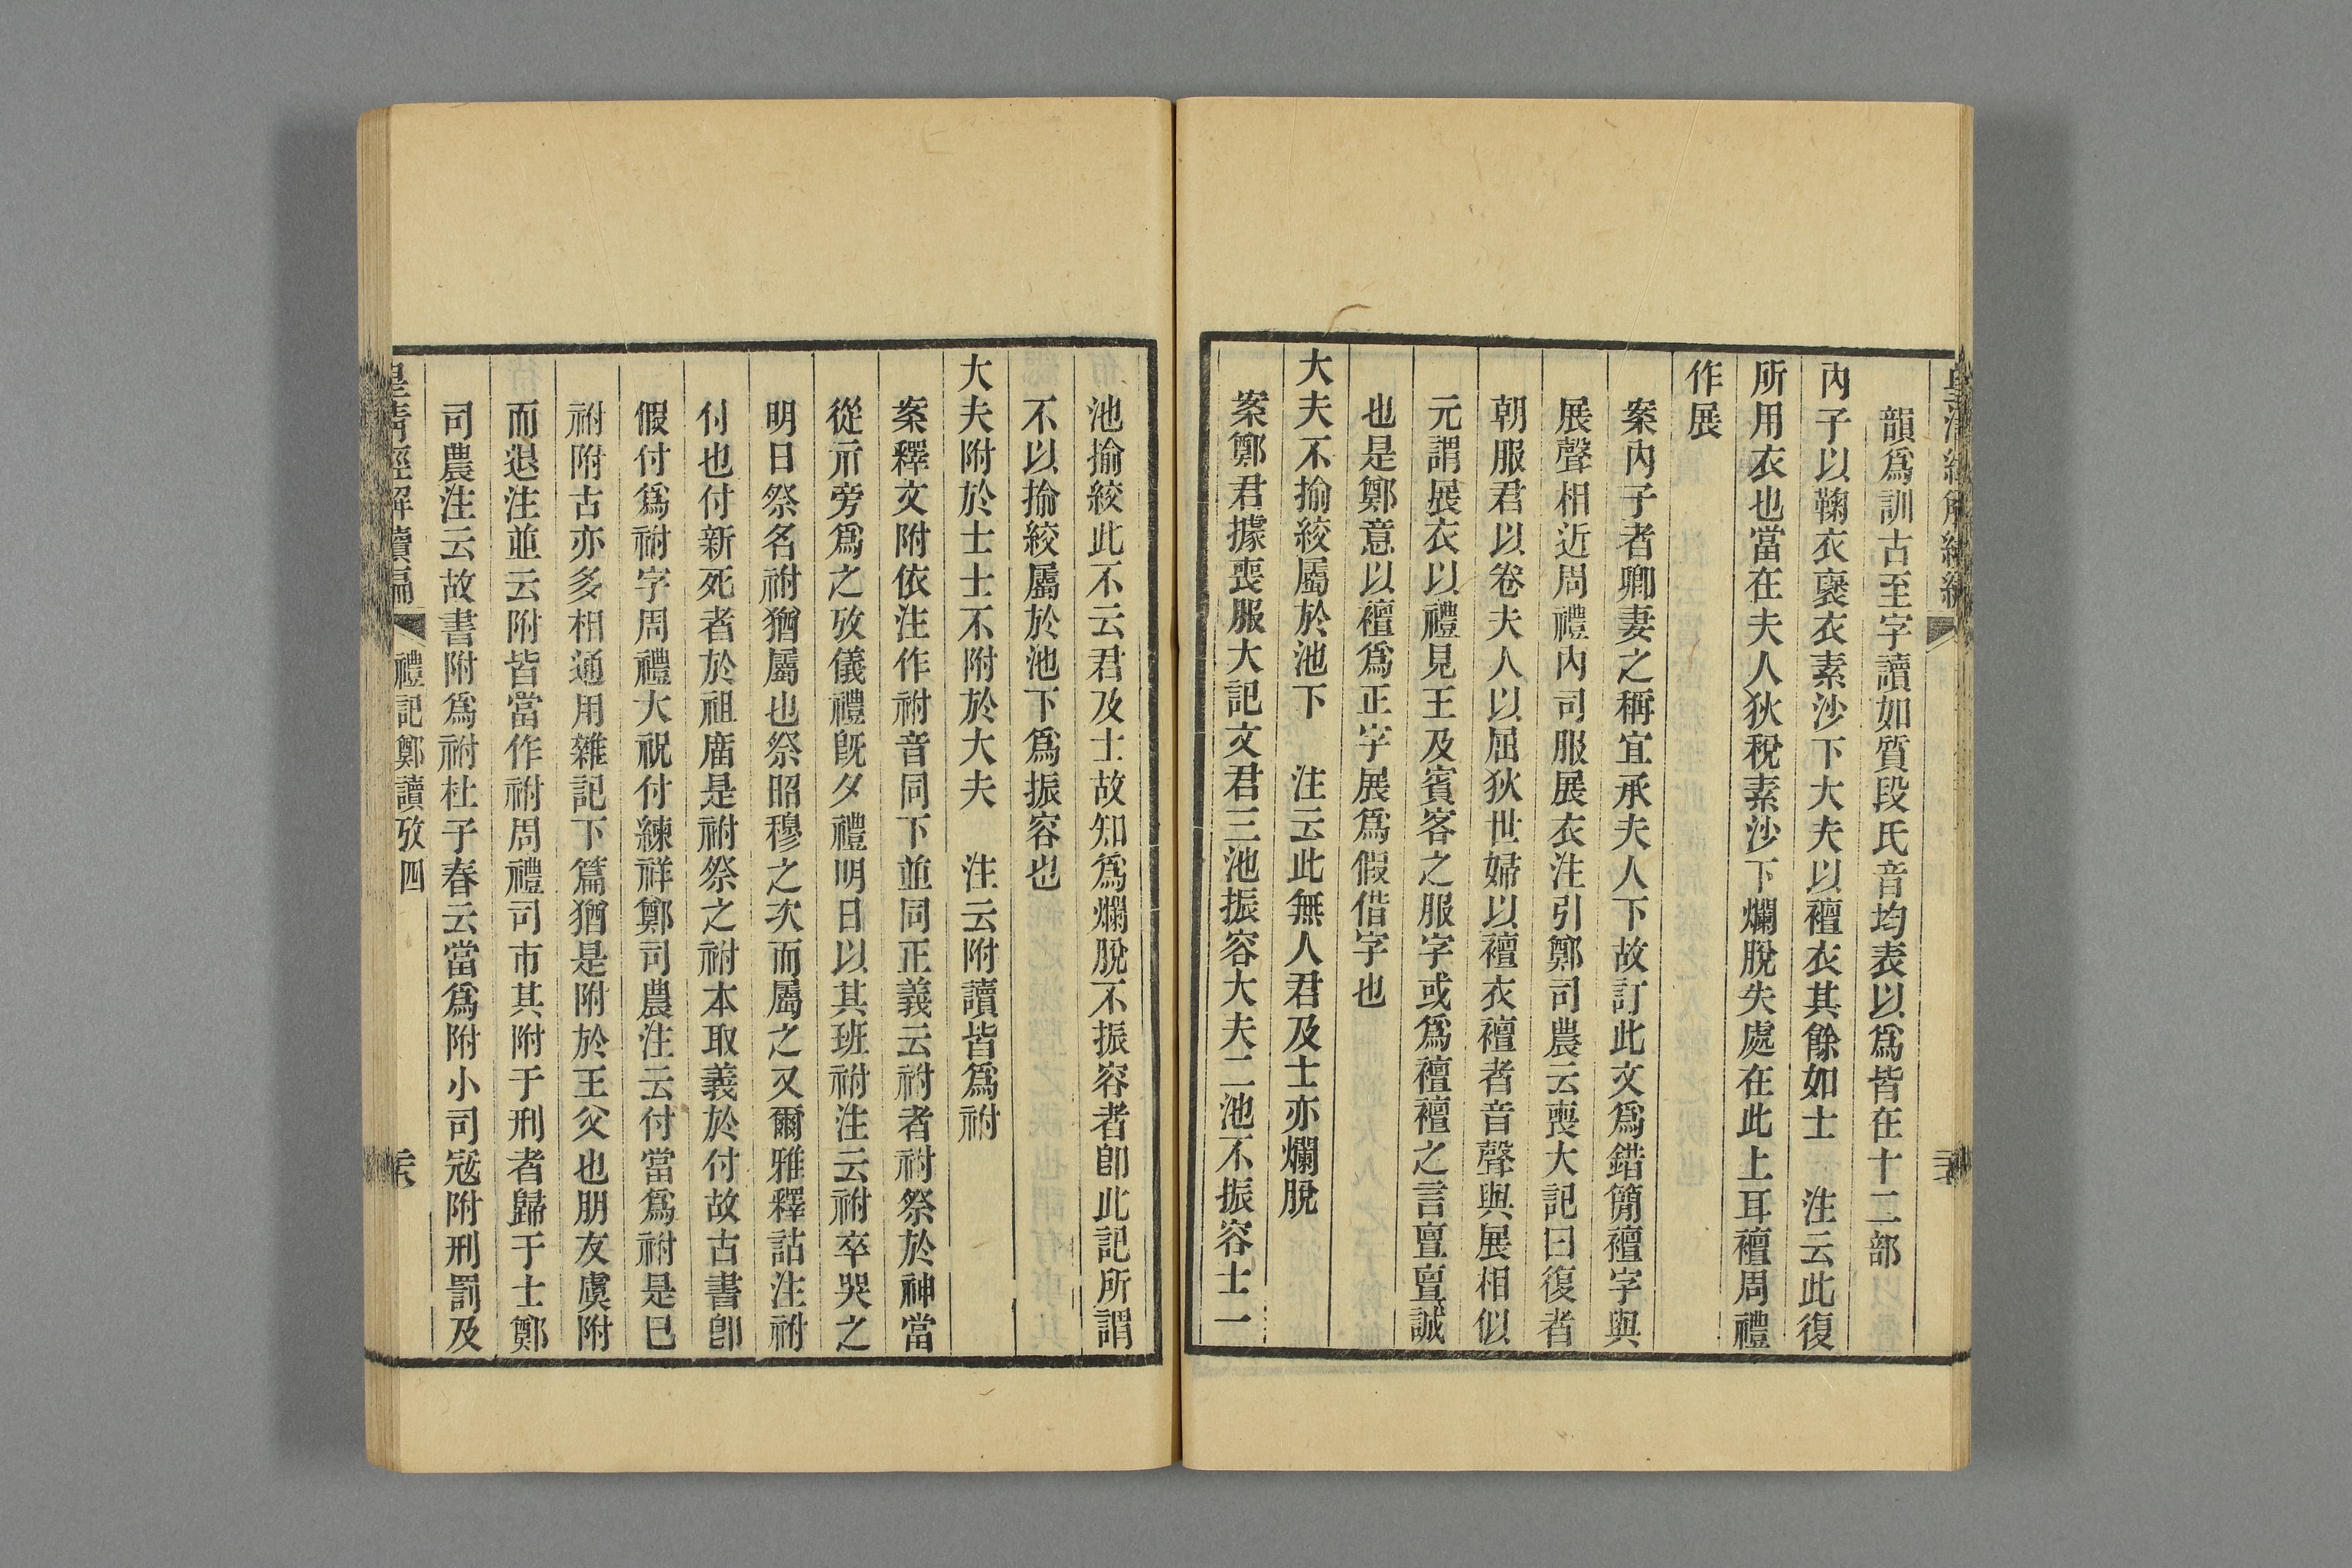 韻爲訓古至字讀如質段氏音均表以爲皆在十二部
內子以鞠衣襃衣素沙下大夫以襢衣其餘如士　注云此復
所用衣也當在夫人狄稅素沙下爛脫失處在此上耳襢周禮
作展
案內子者卿妻之稱宜承夫人下故訂此文爲錯簡襢字與
展聲相近周禮內司服展衣注引鄭司農云喪大記曰復者
朝服君以卷夫人以屈狄世婦以襢衣襢者音聲與展相似
元謂展衣以禮見王及賓客之服字或爲襢襢之言亶亶誠
也是鄭意以襢爲正字展爲假借字也
大夫不揄絞屬於池下　注云此無人君及士亦爛脫
案鄭君據喪服大記文君三池振容大夫二池不振容士一
池揄絞此不云君及士故知爲爛脫不振容者卽此記所謂
不以揄絞屬於池下爲振容也
大夫附於士士不附於大夫　注云附讀皆爲祔
案釋文附依注作祔音同下並同正義云祔者祔祭於神當
從示旁爲之攷儀禮旣夕禮明日以其班祔注云祔卒哭之
明日祭名祔猶屬也祭昭穆之次而屬之又爾雅釋詁注祔
付也付新死者於祖廟是祔祭之祔本取義於付故古書卽
假付爲祔字周禮大祝付練祥鄭司農注云付當爲祔是已
祔附古亦多相通用雜記下篇猶是附於王父也朋友虞附
而退注並云附皆當作祔周禮司市其附于刑者歸于士鄭
司農注云故書附爲祔杜子春云當爲附小司寇附刑罰及
皇淸經解續編　禮記鄭讀攷四